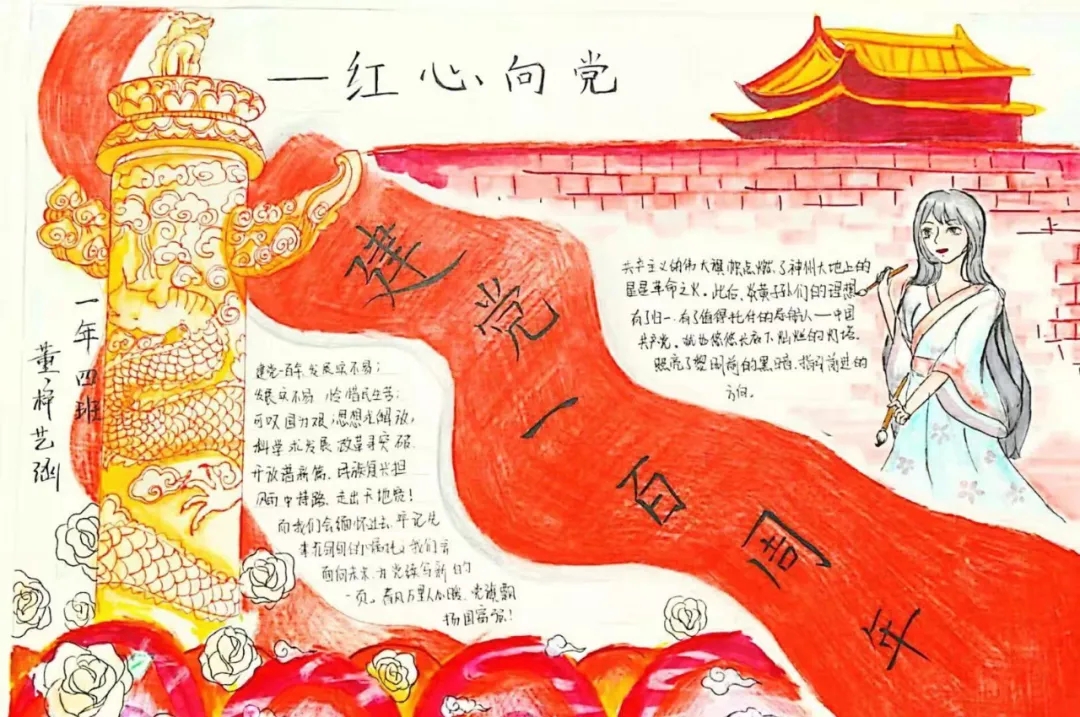 —红心向党
建党一百周年
一年四班
董梓艺涵
共产主义的伟大旗帜点燃了神州大地上的
星星革命之火。此后,炎黄子孙们的理想
有了归一,有了值得托付的 人——中国
共产党。就如悠悠长夜下灿烂的灯塔,
照亮了黎明前的黑暗,指引前进的
方向。
建党一百年,发展实不易;
发展实不易, 民生苦;
可叹国力艰,思想先解放,
科学求发展,改革寻突破.
开放谱新篇,民族复兴担
风雨中铸路,走出天地宽!
而我们会缅怀过去,牢记先
我们会
面向未来,为党续写新的
一页。春风万里人心暖,党旗飘
扬国富强!